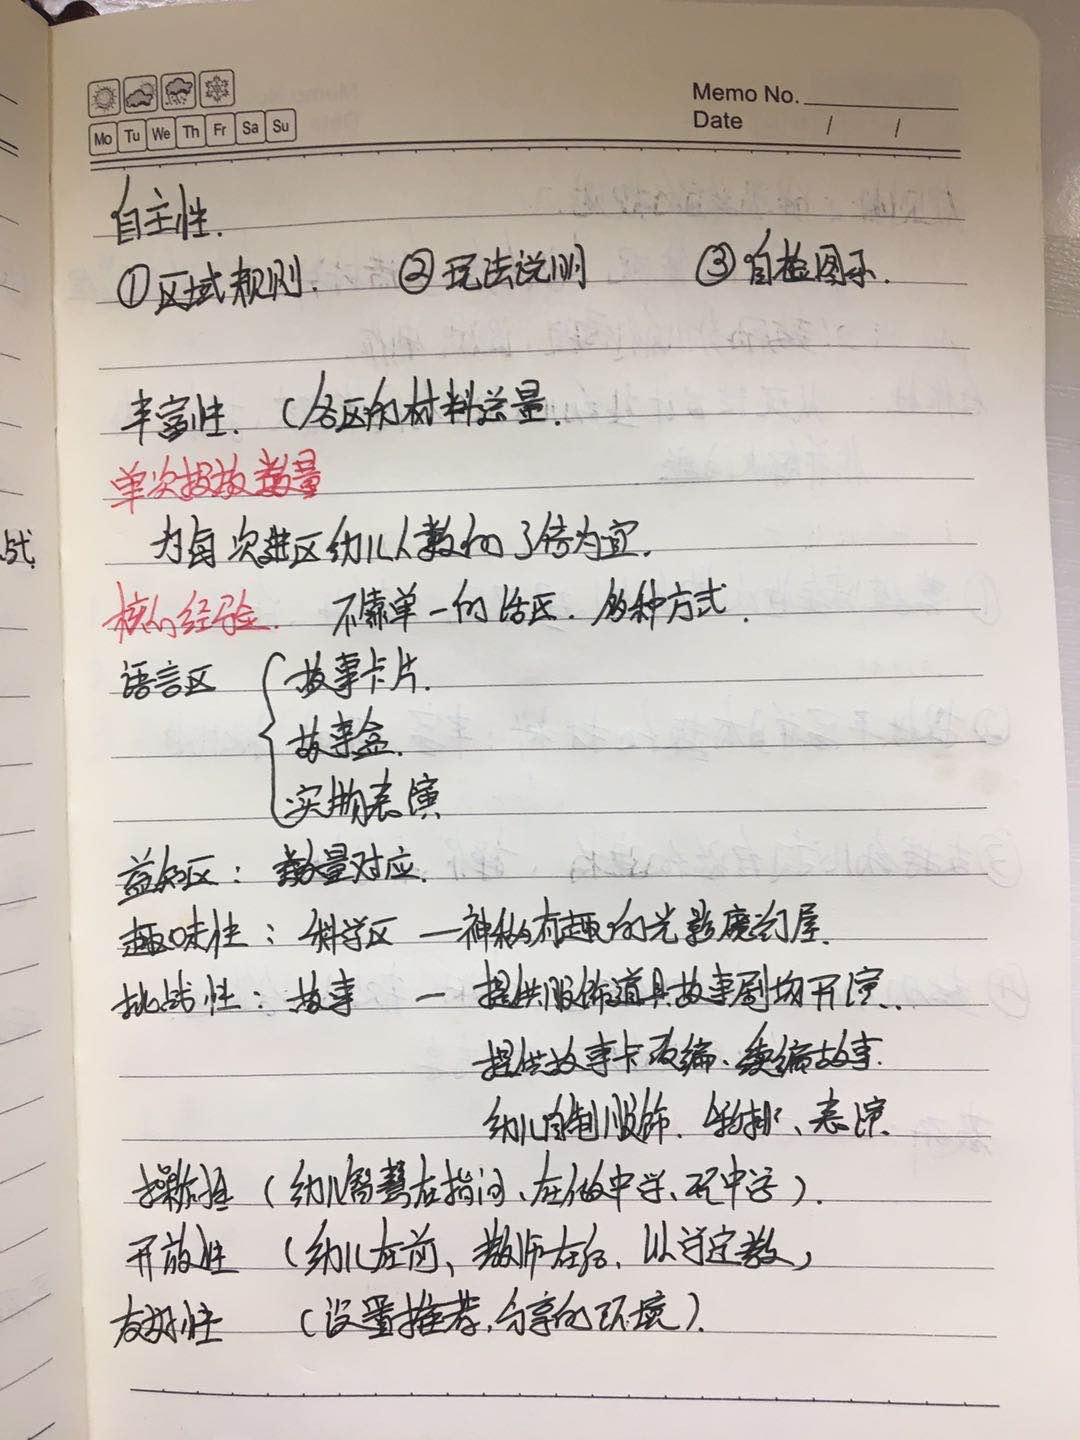 Memo No.
Mo Tu We Th Fr Sa Su
Date / /
自主性.
①区域规则. ②玩法说明 ③自检图示.
丰富性. (各区的材料总量.
单次投放数量
为每次进区幼儿人数的3倍为宜.
核心经验. 不靠单一的活区. 多种方式.
语言区 故事卡片.
故事盒.
实物表演
益智区: 数量对应.
趣味性: 科学区 — 神秘有趣的光影魔幻屋.
挑战性: 故事 — 提供服饰道具故事剧场开演..
提供故事卡改编、续编故事.
幼儿自制服饰. 彩排、表演.
操作性 (幼儿智慧在指间、在做中学、玩中学).
开放性 (幼儿在前、教师在后. 以学定教,
友好性 (设置推荐.分享的环境).
战